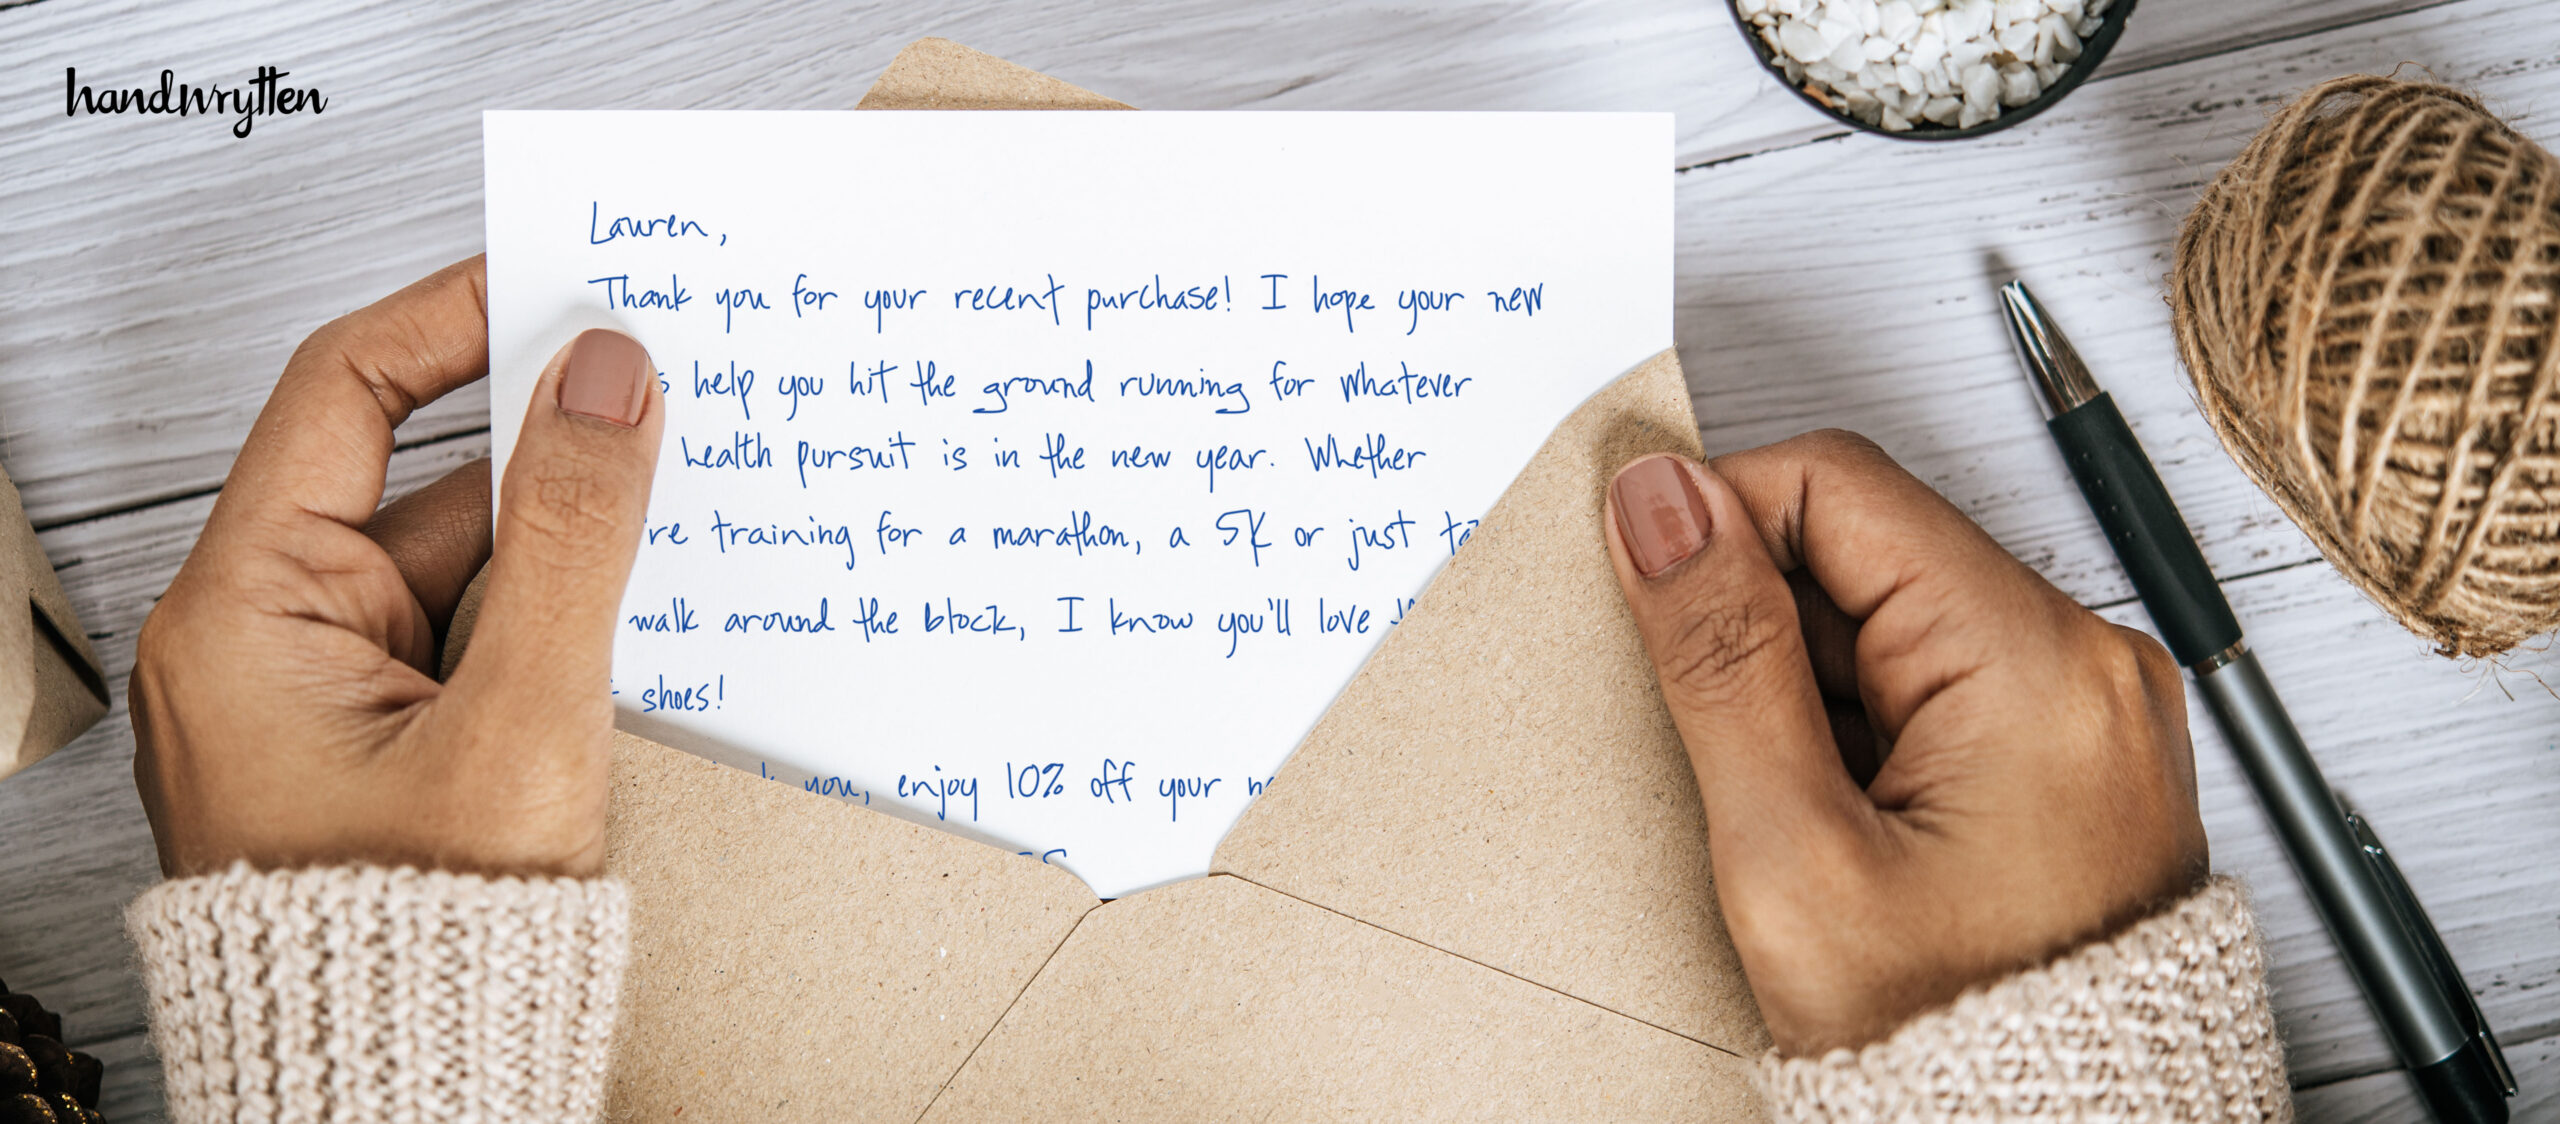 handwrytten
Lauren,
Thank you for your recent purchase! I hope your new
help you hit the ground running for whatever
health pursuit is in the new year. Whether
're training for a marathon, a 5K or just
walk around the block, I know you'll love
shoes!
you, enjoy 10% off your